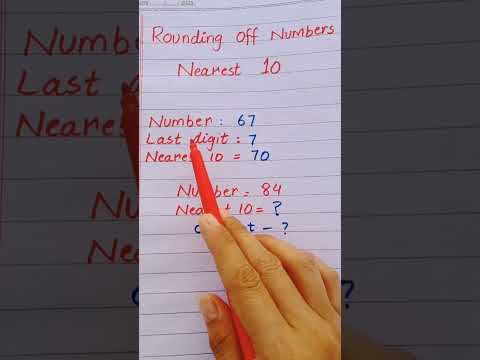 Rounding Off Numbers
Nearest 10
Number : 67
Last digit : 7
Nearest 10 = 70
Number = 84
10 = ?
- ?